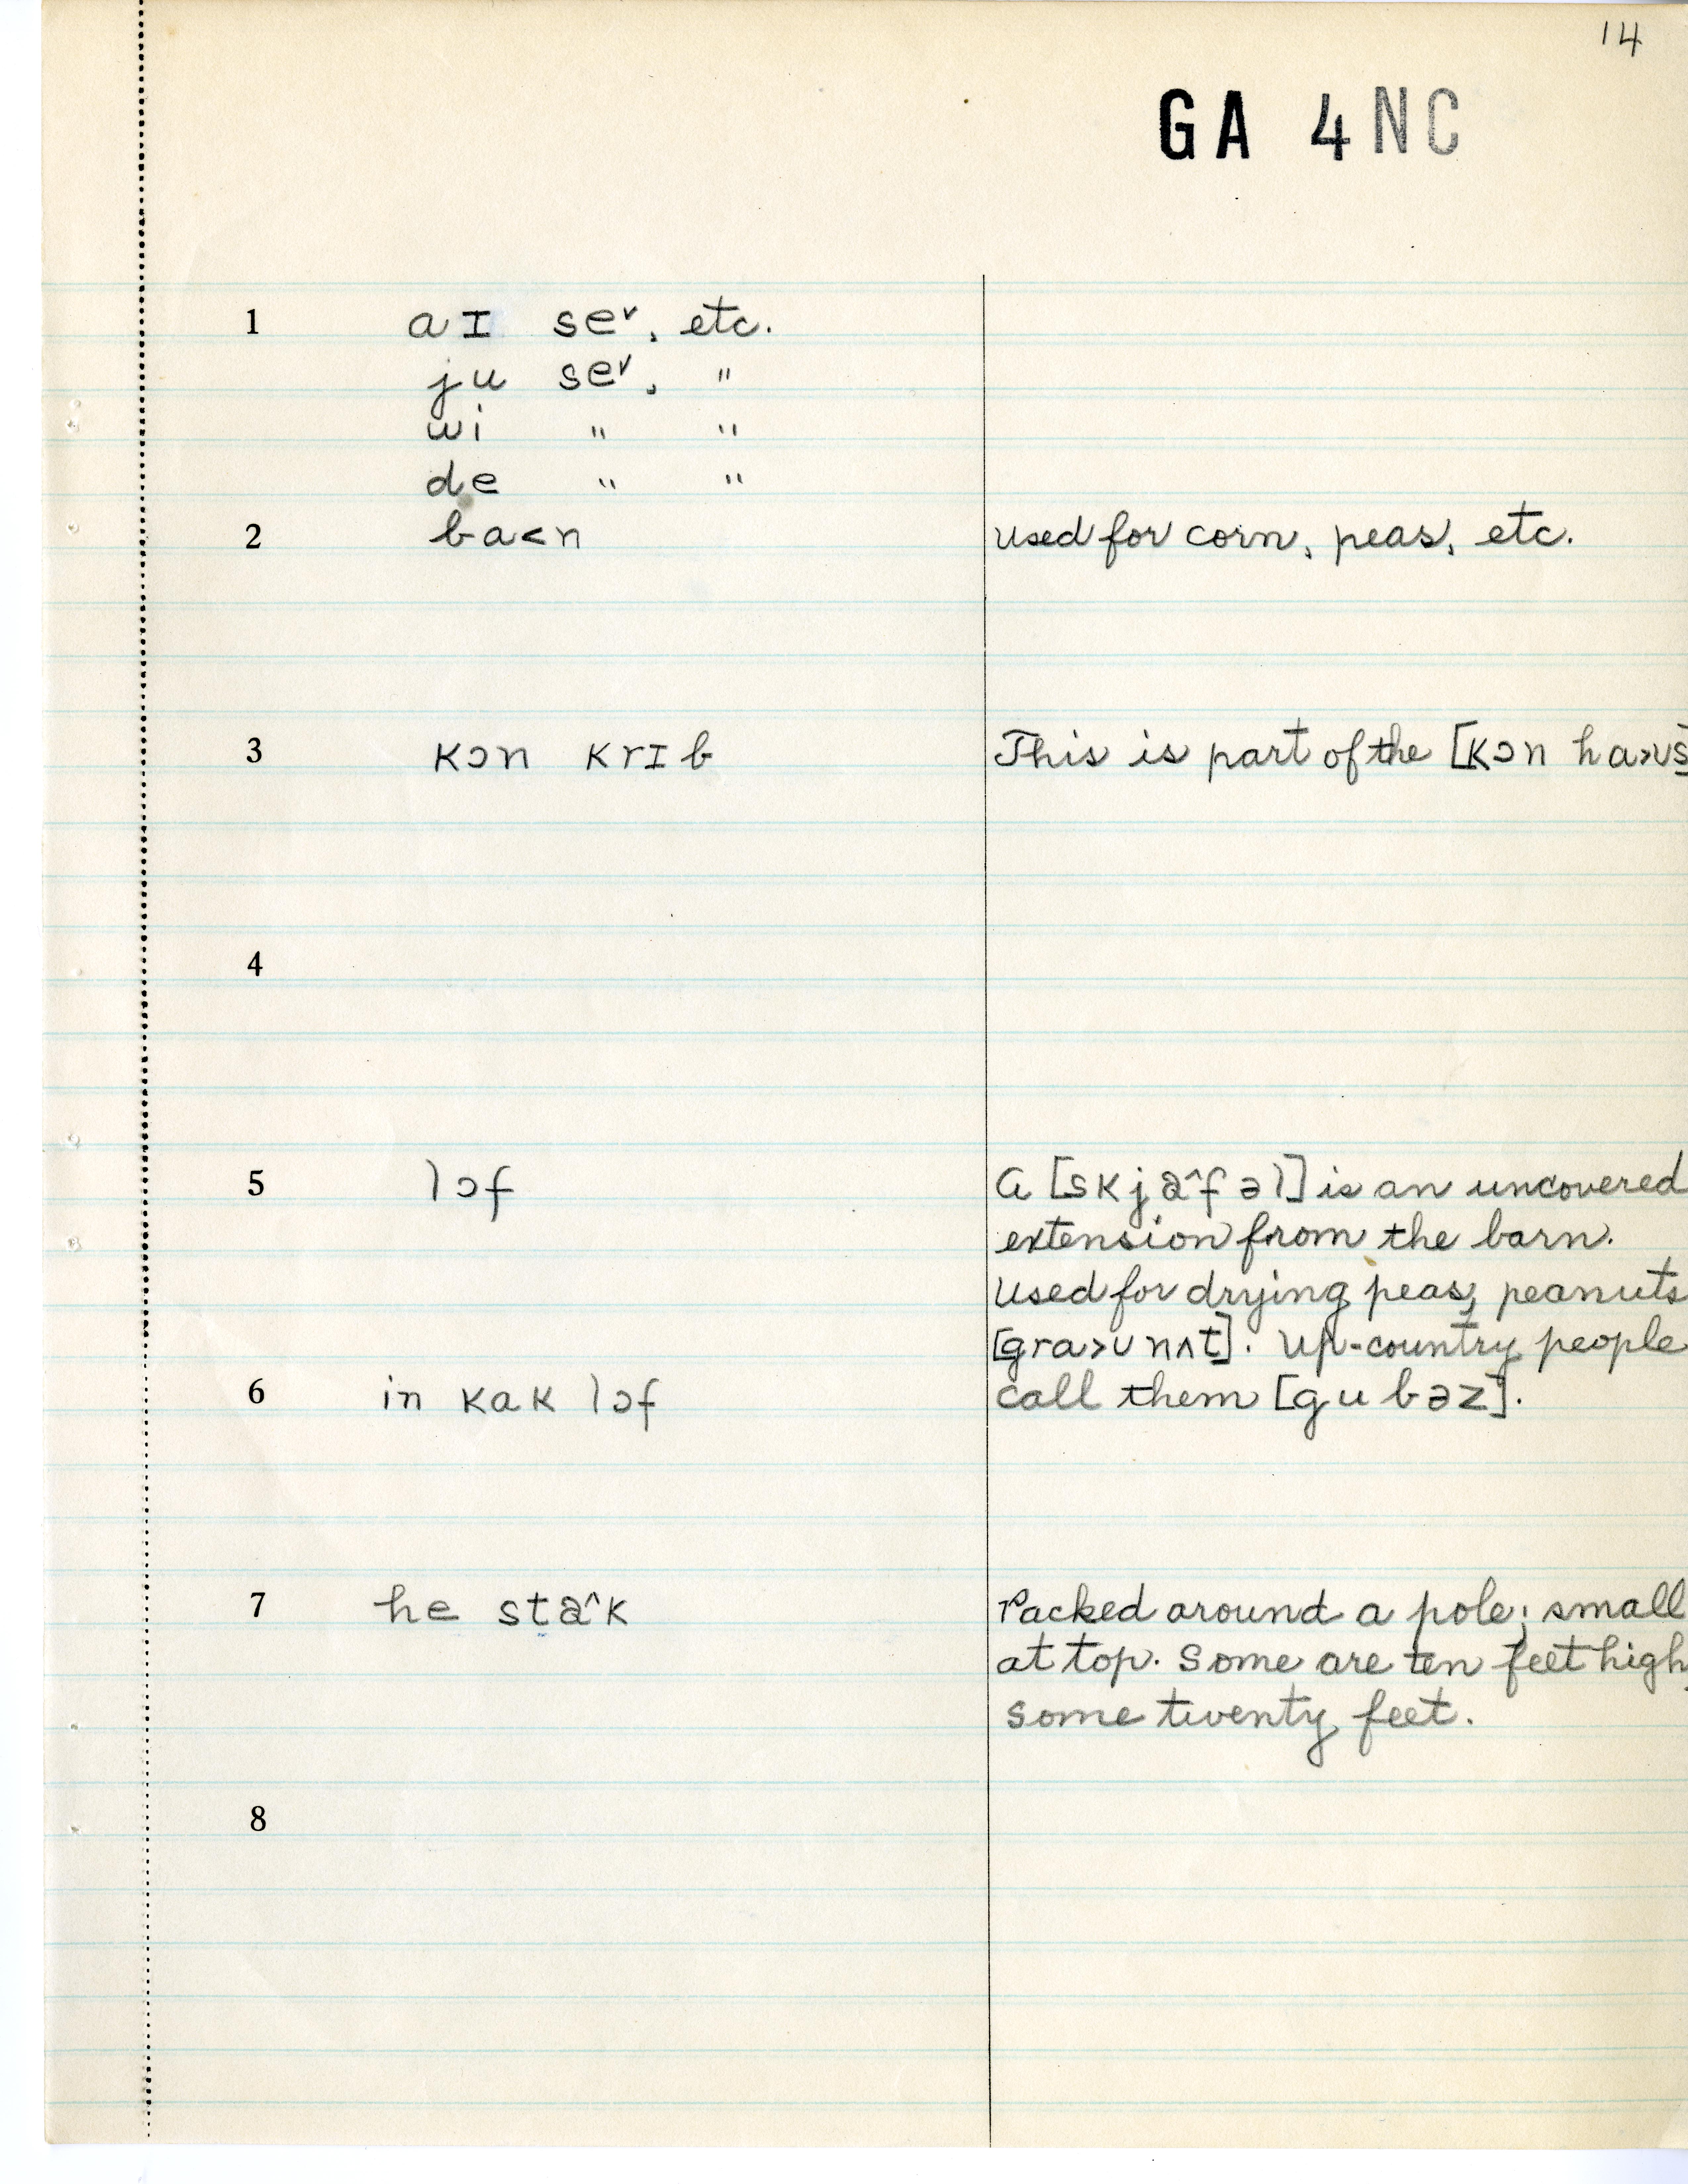 14
GA 4NC
1 aɪ se˅, etc.
ju se˅, "
wi " "
de " "
2 ba<n used for corn, peas, etc.
3 kɔn krɪb This is part of the [kɔn ha>ʊs]
4
5 lɔf A [skja^fəl] is an uncovered
extension from the barn.
Used for drying peas, peanuts
[gra>ʊnʌt]. Up-country people
6 in kak lɔf call them [gubəz].
7 he sta^k Packed around a pole; small
at top. Some are ten feet high,
some twenty feet.
8